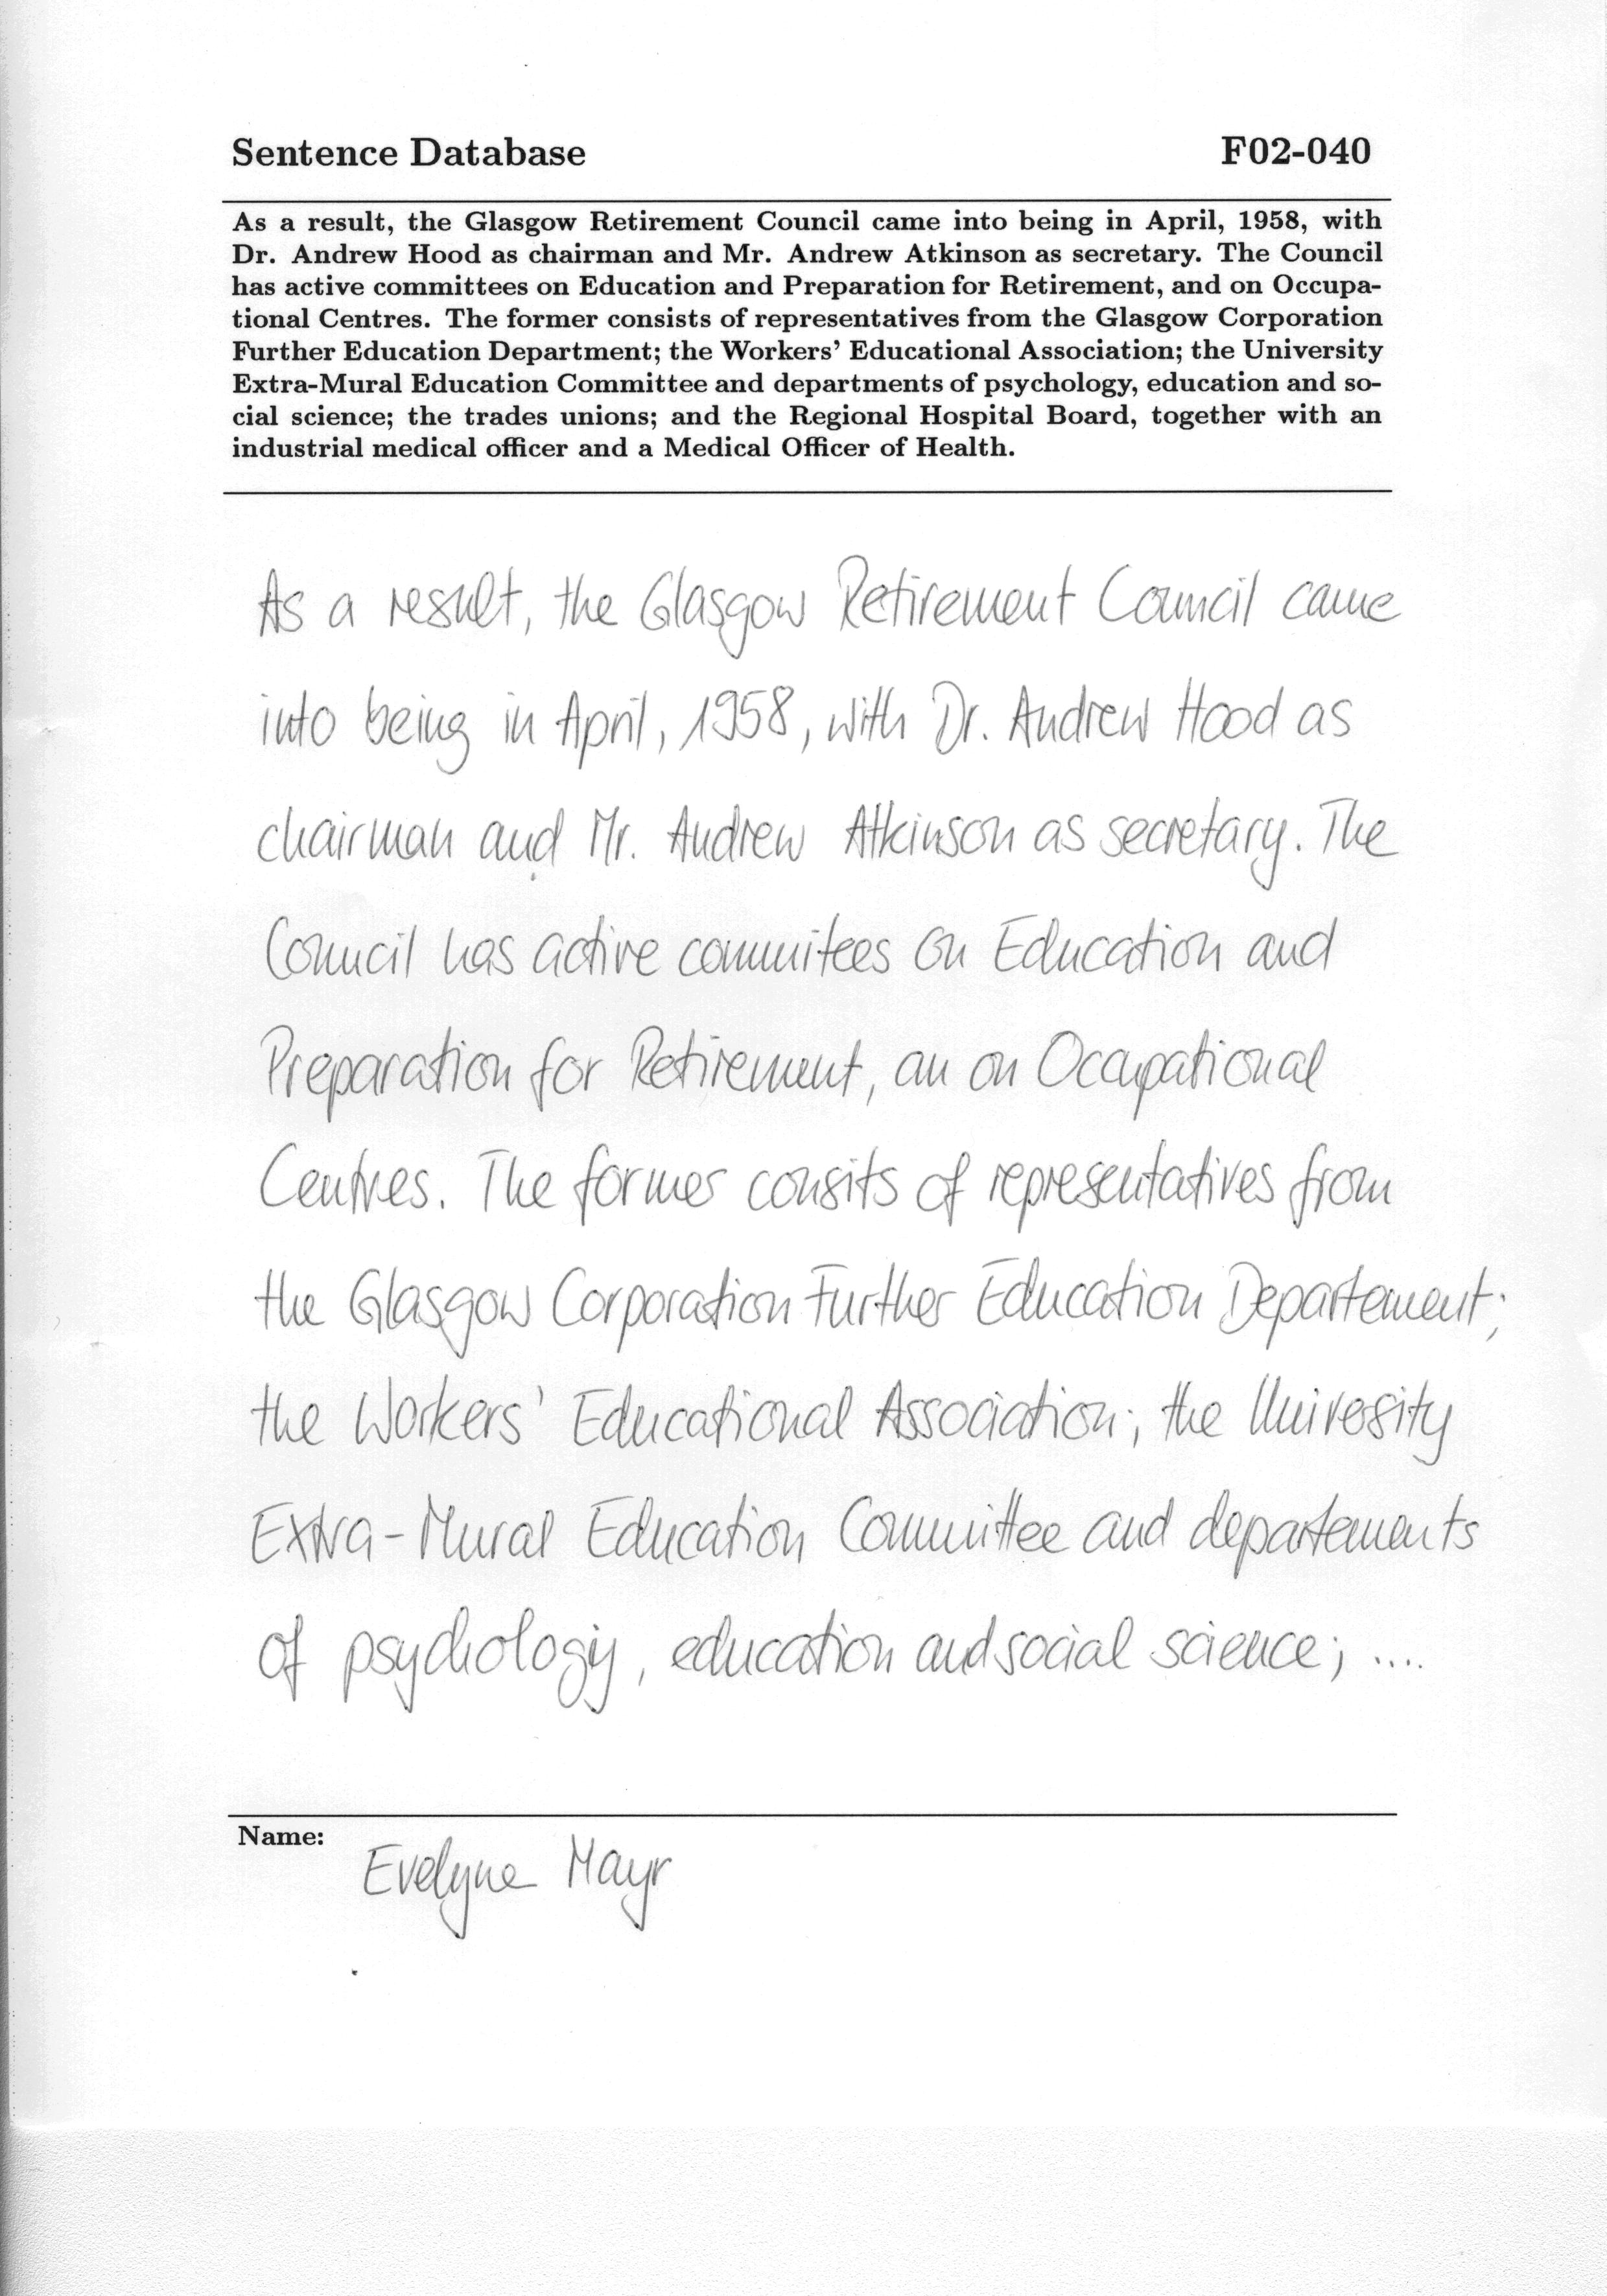 Sentence Database F02-040
As a result, the Glasgow Retirement Council came into being in April, 1958, with
Dr. Andrew Hood as chairman and Mr. Andrew Atkinson as secretary. The Council
has active committees on Education and Preparation for Retirement, and on Occupa-
tional Centres. The former consists of representatives from the Glasgow Corporation
Further Education Department; the Workers' Educational Association; the University
Extra-Mural Education Committee and departments of psychology, education and so-
cial science; the trades unions; and the Regional Hospital Board, together with an
industrial medical officer and a Medical Officer of Health.
As a result, the Glasgow Retirement Council came
into being in April, 1958, with Dr. Andrew Hood as
chairman and Mr. Andrew Atkinson as secretary. The
Council has active commitees on Education and
Preparation for Retirement, an on Ocupational
Centres. The former consits of representatives from
the Glasgow Corporation Further Education Departement;
the Workers' Educational Association; the Univesity
Extra-Mural Education Committee and departements
of psychology, education and social science; ....
Name:
Evelyne Mayr